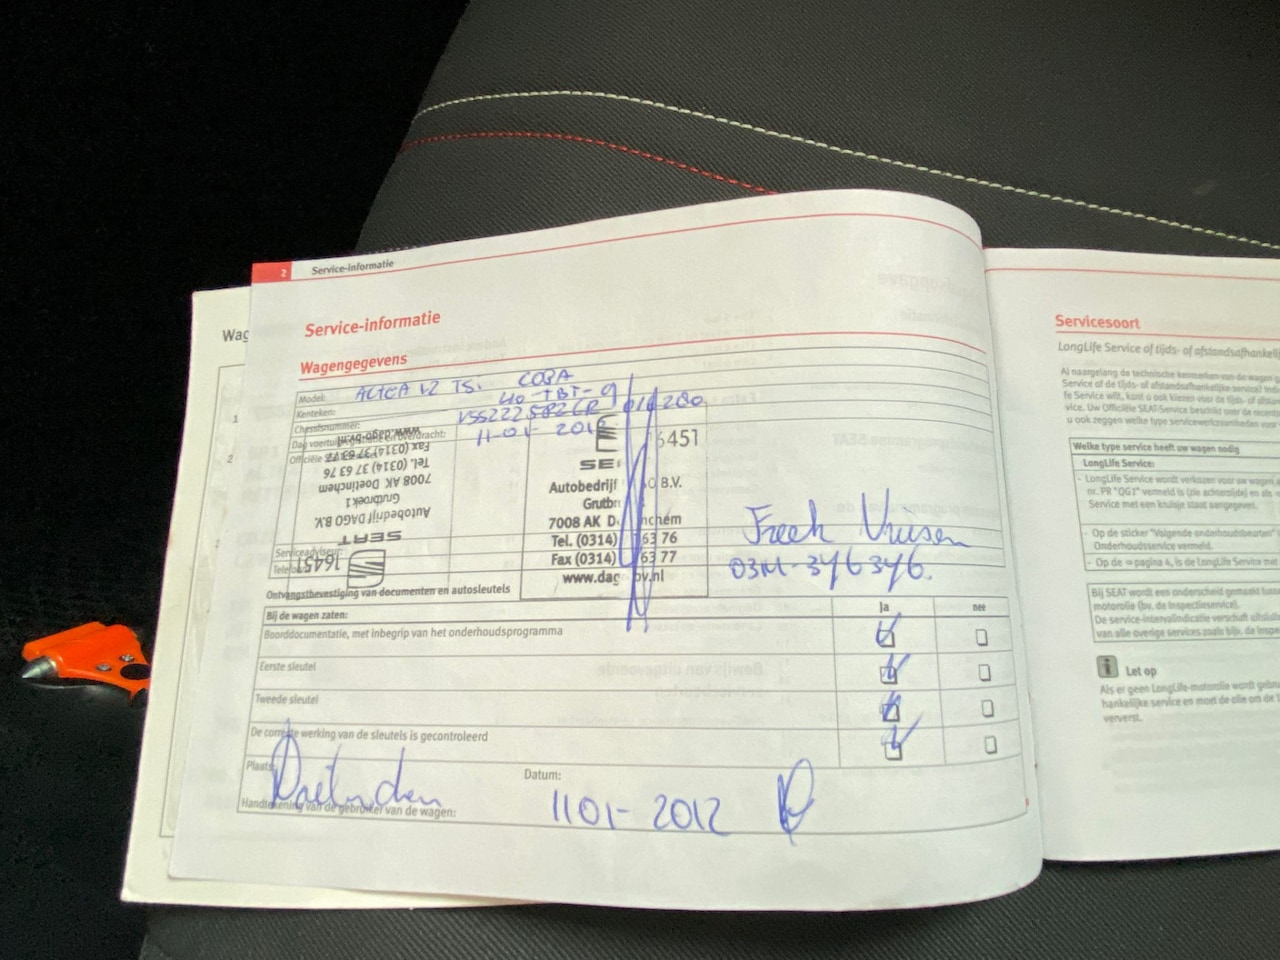 2 Service-informatie
Service-informatie
Wagengegevens
Model: ALTEA 1.2 TSi COPA
Kenteken: 40-TBT-9
Chassisnummer:
Dag voertuigregistratie en overdracht: 11-01-2012
Officiële
www.dago-bv.nl
Fax (0314) 37 63 77
Tel. (0314) 37 63 76
7008 AK Doetinchem
Grutbroek 1
Autobedrijf DAGO B.V.
SEAT
16451
6451
SE
Autobedrijf O B.V.
Grutbr
7008 AK D nchem
Tel. (0314) 63 76
Fax (0314) 63 77
www.dag bv.nl
Serviceadviseur: Freek
Telefoon: 0314-376376.
Ontvangstbevestiging van documenten en autosleutels
Bij de wagen zaten: Ja nee
Boorddocumentatie, met inbegrip van het onderhoudsprogramma
Eerste sleutel
Tweede sleutel
De correcte werking van de sleutels is gecontroleerd
Plaats: Datum:
Handtekening van de gebruiker van de wagen: 1101-2012
Wag
1
2
2
Servicesoort
LongLife Service of tijds- of afstandsafhankelij
Al naargelang de technische kenmerken van de wagen
Service of de tijds- of afstandsafhankelijke service) 
fe Service wilt, kunt u ook kiezen voor de tijds- of afstands
vice. Uw Officiële SEAT-Service beschikt over de recentste
u ook zeggen welke type servicewerkzaamheden voor
Welke type service heeft uw wagen nodig
LongLife Service:
- LongLife Service wordt verkozen voor uw wagen
nr. PR "QG1" vermeld is (zie achterzijde) en als
Service met een kruisje staat aangegeven.
- Op de sticker "Volgende onderhoudsbeurten"
Onderhoudsservice vermeld.
- Op de ⇒ pagina 4, is de LongLife Service met
Bij SEAT wordt een onderscheid gemaakt tussen
motorolie (bv. de Inspectieservice).
De service-intervalindicatie verschaft uitsluit
van alle overige services zoals bijv. de Inspe
i Let op
Als er geen LongLife-motorolie wordt gebru
hankelijke service en moet de olie om de 1
ververst.